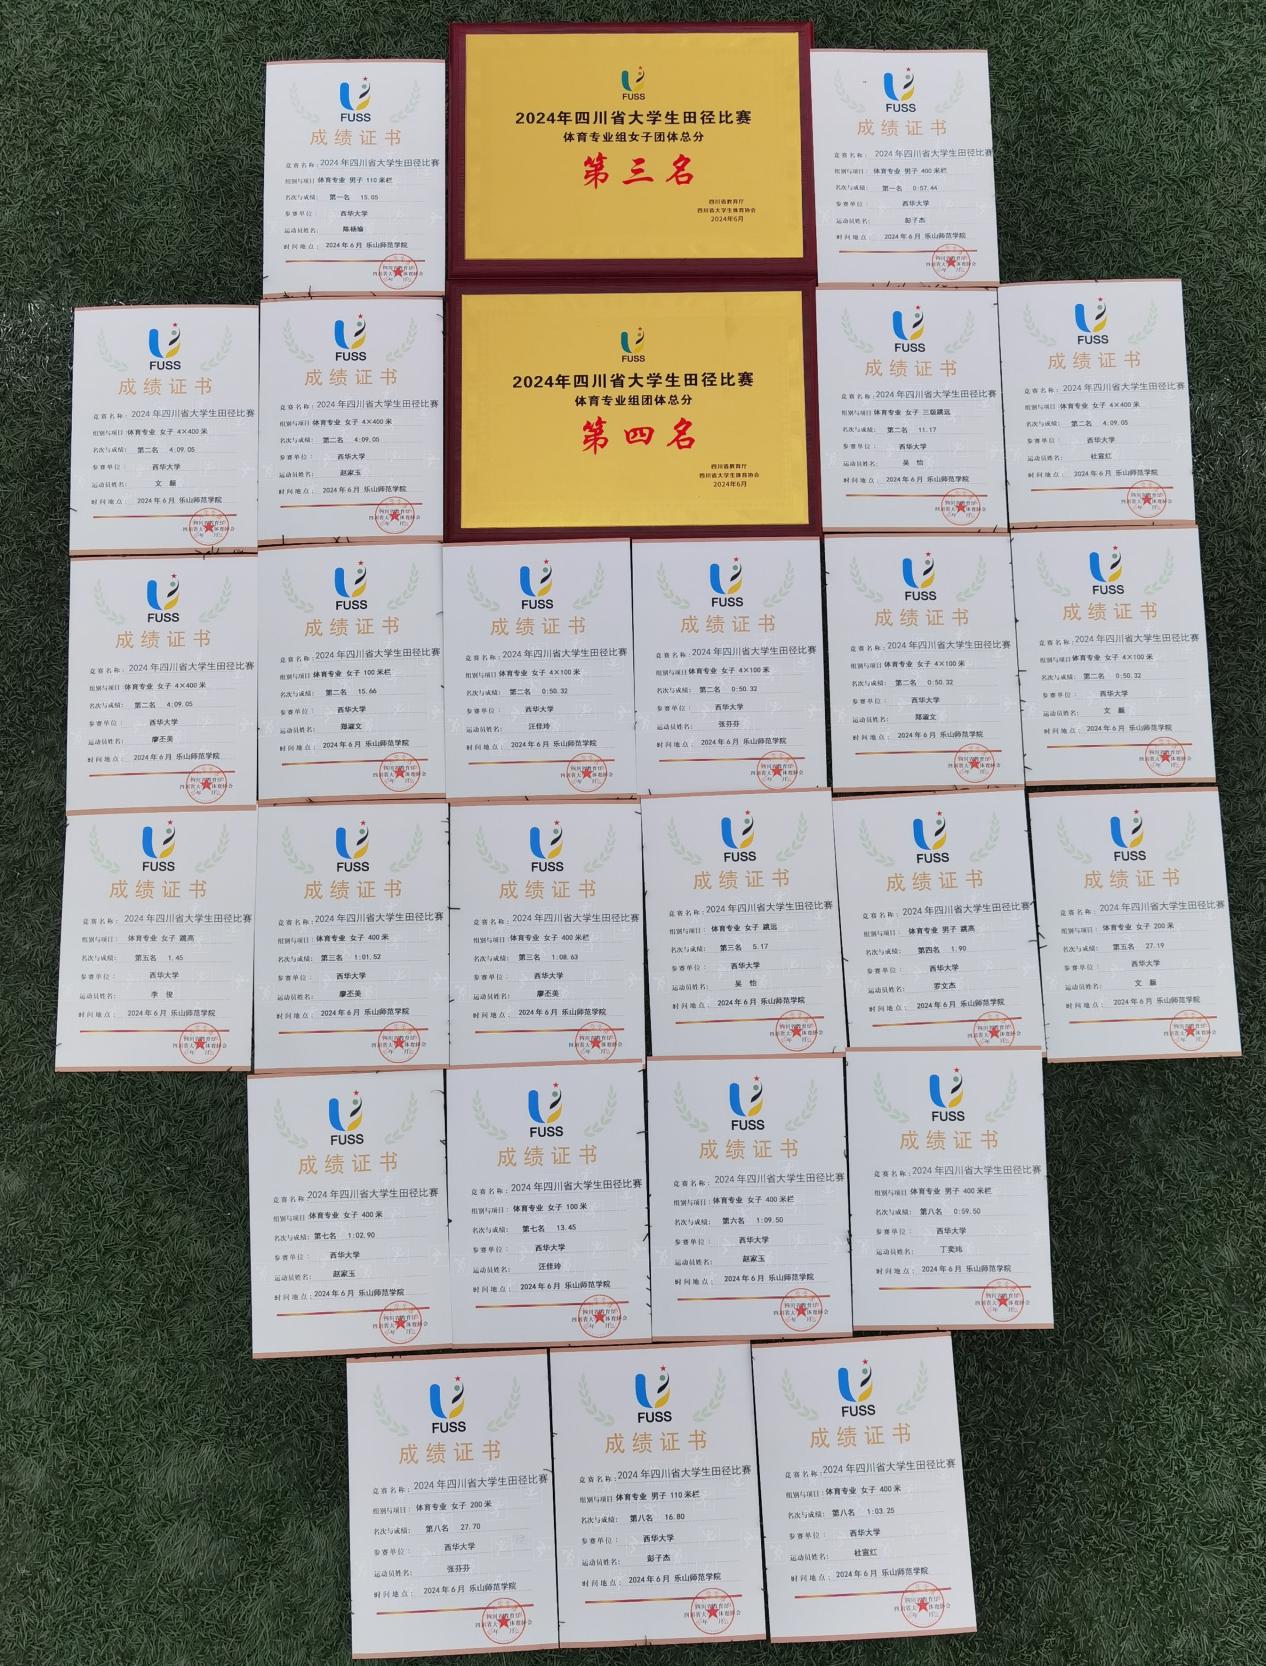 FUSS
成绩证书
竞赛名称：2024年四川省大学生田径比赛
组别与项目：体育专业 男子 110米栏
名次与成绩： 第一名 15.05
参赛单位： 西华大学
运动员姓名：
时间地点： 2024年6月 乐山师范学院
FUSS
2024年四川省大学生田径比赛
体育专业组女子团体总分
第三名
四川省教育厅
四川省大学生体育协会
2024年6月
FUSS
成绩证书
竞赛名称： 2024年四川省大学生田径比赛
组别与项目：体育专业 男子 400米栏
名次与成绩： 第一名 0:57.44
参赛单位： 西华大学
运动员姓名： 彭子杰
时间地点： 2024年6月 乐山师范学院
FUSS
成绩证书
竞赛名称：2024年四川省大学生田径比赛
组别与项目：体育专业 女子 4×400米
名次与成绩： 第二名 4:09.05
参赛单位： 西华大学
运动员姓名： 文
时间地点： 2024年6月 乐山师范学院
FUSS
成绩证书
竞赛名称：2024年四川省大学生田径比赛
组别与项目：体育专业 女子 4×400米
名次与成绩： 第二名 4:09.05
参赛单位： 西华大学
运动员姓名： 赵家玉
时间地点： 2024年6月 乐山师范学院
FUSS
2024年四川省大学生田径比赛
体育专业组团体总分
第四名
四川省教育厅
四川省大学生体育协会
2024年6月
FUSS
成绩证书
竞赛名称：2024年四川省大学生田径比赛
组别与项目：体育专业 女子 三级跳远
名次与成绩： 第二名 11.17
参赛单位： 西华大学
运动员姓名： 吴怡
时间地点： 2024年6月 乐山师范学院
FUSS
成绩证书
竞赛名称：2024年四川省大学生田径比赛
组别与项目：体育专业 女子 4×400米
名次与成绩： 第二名 4:09.05
参赛单位： 西华大学
运动员姓名： 杜宣红
时间地点： 2024年6月 乐山师范学院
FUSS
成绩证书
竞赛名称：2024年四川省大学生田径比赛
组别与项目：体育专业 女子 4×400米
名次与成绩： 第二名 4:09.05
参赛单位： 西华大学
运动员姓名： 廖丕美
时间地点： 2024年6月 乐山师范学院
FUSS
成绩证书
竞赛名称：2024年四川省大学生田径比赛
组别与项目：体育专业 女子 100米栏
名次与成绩： 第二名 15.66
参赛单位： 西华大学
运动员姓名： 郑淑文
时间地点： 2024年6月 乐山师范学院
FUSS
成绩证书
竞赛名称：2024年四川省大学生田径比赛
组别与项目：体育专业 女子 4×100米
名次与成绩： 第二名 0:50.32
参赛单位： 西华大学
运动员姓名： 汪佳玲
时间地点： 2024年6月 乐山师范学院
FUSS
成绩证书
竞赛名称：2024年四川省大学生田径比赛
组别与项目：体育专业 女子 4×100米
名次与成绩： 第二名 0:50.32
参赛单位： 西华大学
运动员姓名： 张芬芬
时间地点： 2024年6月 乐山师范学院
FUSS
成绩证书
竞赛名称：2024年四川省大学生田径比赛
组别与项目：体育专业 女子 4×100米
名次与成绩： 第二名 0:50.32
参赛单位： 西华大学
运动员姓名： 郑淑文
时间地点： 2024年6月 乐山师范学院
FUSS
成绩证书
竞赛名称：2024年四川省大学生田径比赛
组别与项目：体育专业 女子 4×100米
名次与成绩： 第二名 0:50.32
参赛单位： 西华大学
运动员姓名： 文
时间地点： 2024年6月 乐山师范学院
FUSS
成绩证书
竞赛名称：2024年四川省大学生田径比赛
组别与项目： 体育专业 女子 跳高
名次与成绩： 第五名 1.45
参赛单位： 西华大学
运动员姓名： 李俊
时间地点： 2024年6月 乐山师范学院
FUSS
成绩证书
竞赛名称：2024年四川省大学生田径比赛
组别与项目：体育专业 女子 400米
名次与成绩： 第三名 1:01.52
参赛单位： 西华大学
运动员姓名： 廖丕美
时间地点： 2024年6月 乐山师范学院
FUSS
成绩证书
竞赛名称：2024年四川省大学生田径比赛
组别与项目：体育专业 女子 400米栏
名次与成绩： 第三名 1:08.63
参赛单位： 西华大学
运动员姓名： 廖丕美
时间地点： 2024年6月 乐山师范学院
FUSS
成绩证书
竞赛名称：2024年四川省大学生田径比赛
组别与项目： 体育专业 女子 跳远
名次与成绩： 第三名 5.17
参赛单位： 西华大学
运动员姓名： 吴怡
时间地点： 2024年6月 乐山师范学院
FUSS
成绩证书
竞赛名称：2024年四川省大学生田径比赛
组别与项目： 体育专业 男子 跳高
名次与成绩： 第四名 1.90
参赛单位： 西华大学
运动员姓名： 罗文杰
时间地点： 2024年6月 乐山师范学院
FUSS
成绩证书
竞赛名称：2024年四川省大学生田径比赛
组别与项目： 体育专业 女子 200米
名次与成绩： 第五名 27.19
参赛单位： 西华大学
运动员姓名： 文
时间地点： 2024年6月 乐山师范学院
FUSS
成绩证书
竞赛名称：2024年四川省大学生田径比赛
组别与项目：体育专业 女子 400米
名次与成绩： 第七名 1:02.90
参赛单位： 西华大学
运动员姓名： 赵家玉
时间地点：2024年6月 乐山师范学院
FUSS
成绩证书
竞赛名称：2024年四川省大学生田径比赛
组别与项目：体育专业 女子 100米
名次与成绩： 第七名 13.45
参赛单位： 西华大学
运动员姓名： 汪佳玲
时间地点： 2024年6月 乐山师范学院
FUSS
成绩证书
竞赛名称：2024年四川省大学生田径比赛
组别与项目：体育专业 女子 400米栏
名次与成绩： 第六名 1:09.50
参赛单位： 西华大学
运动员姓名： 赵家玉
时间地点： 2024年6月 乐山师范学院
FUSS
成绩证书
竞赛名称：2024年四川省大学生田径比赛
组别与项目：体育专业 男子 400米栏
名次与成绩： 第八名 0:59.50
参赛单位： 西华大学
运动员姓名： 丁奕玮
时间地点： 2024年6月 乐山师范学院
FUSS
成绩证书
竞赛名称：2024年四川省大学生田径比赛
组别与项目：体育专业 女子 200米
名次与成绩： 第八名 27.70
参赛单位： 西华大学
运动员姓名： 张芬芬
时间地点： 2024年6月 乐山师范学院
FUSS
成绩证书
竞赛名称：2024年四川省大学生田径比赛
组别与项目：体育专业 男子 110米栏
名次与成绩： 第八名 16.80
参赛单位： 西华大学
运动员姓名： 彭子杰
时间地点： 2024年6月 乐山师范学院
FUSS
成绩证书
竞赛名称：2024年四川省大学生田径比赛
组别与项目：体育专业 女子 400米
名次与成绩： 第八名 1:03.25
参赛单位： 西华大学
运动员姓名： 杜宣红
时间地点： 2024年6月 乐山师范学院